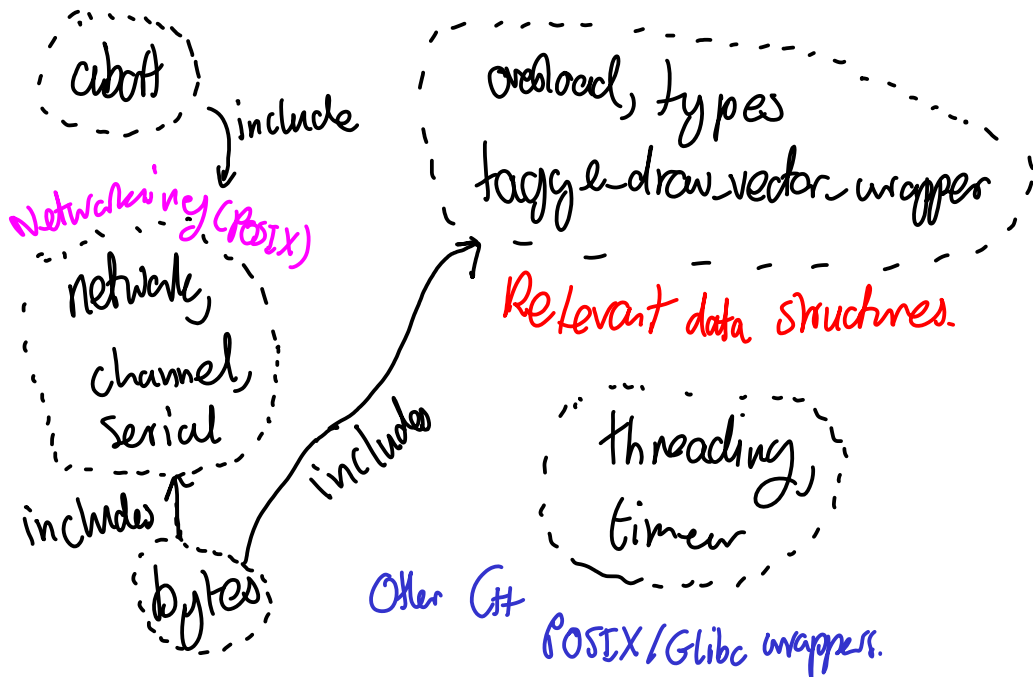 abort
include
Networking (POSIX)
network,
channel,
serial
includes
bytes
includes
overload, types
tagge_draw_vector_wrapper
Relevant data structures.
threading,
timer
Other C++
POSIX/Glibc wrappers.